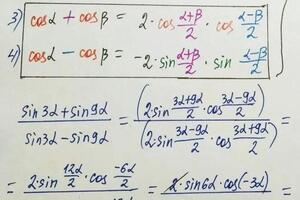 3) cosα + cosβ = 2·cos (α+β)/2 · cos (α−β)/2
4) cosα − cosβ = −2·sin (α+β)/2 · sin (α−β)/2
(sin3α+sin9α)/(sin3α−sin9α) = (2·sin (3α+9α)/2 · cos (3α−9α)/2)/(2·sin (3α−9α)/2 · cos (3α+9α)/2) =
= 2·sin 12α/2 · cos −6α/2 = 2·sin6α·cos(−3α) =